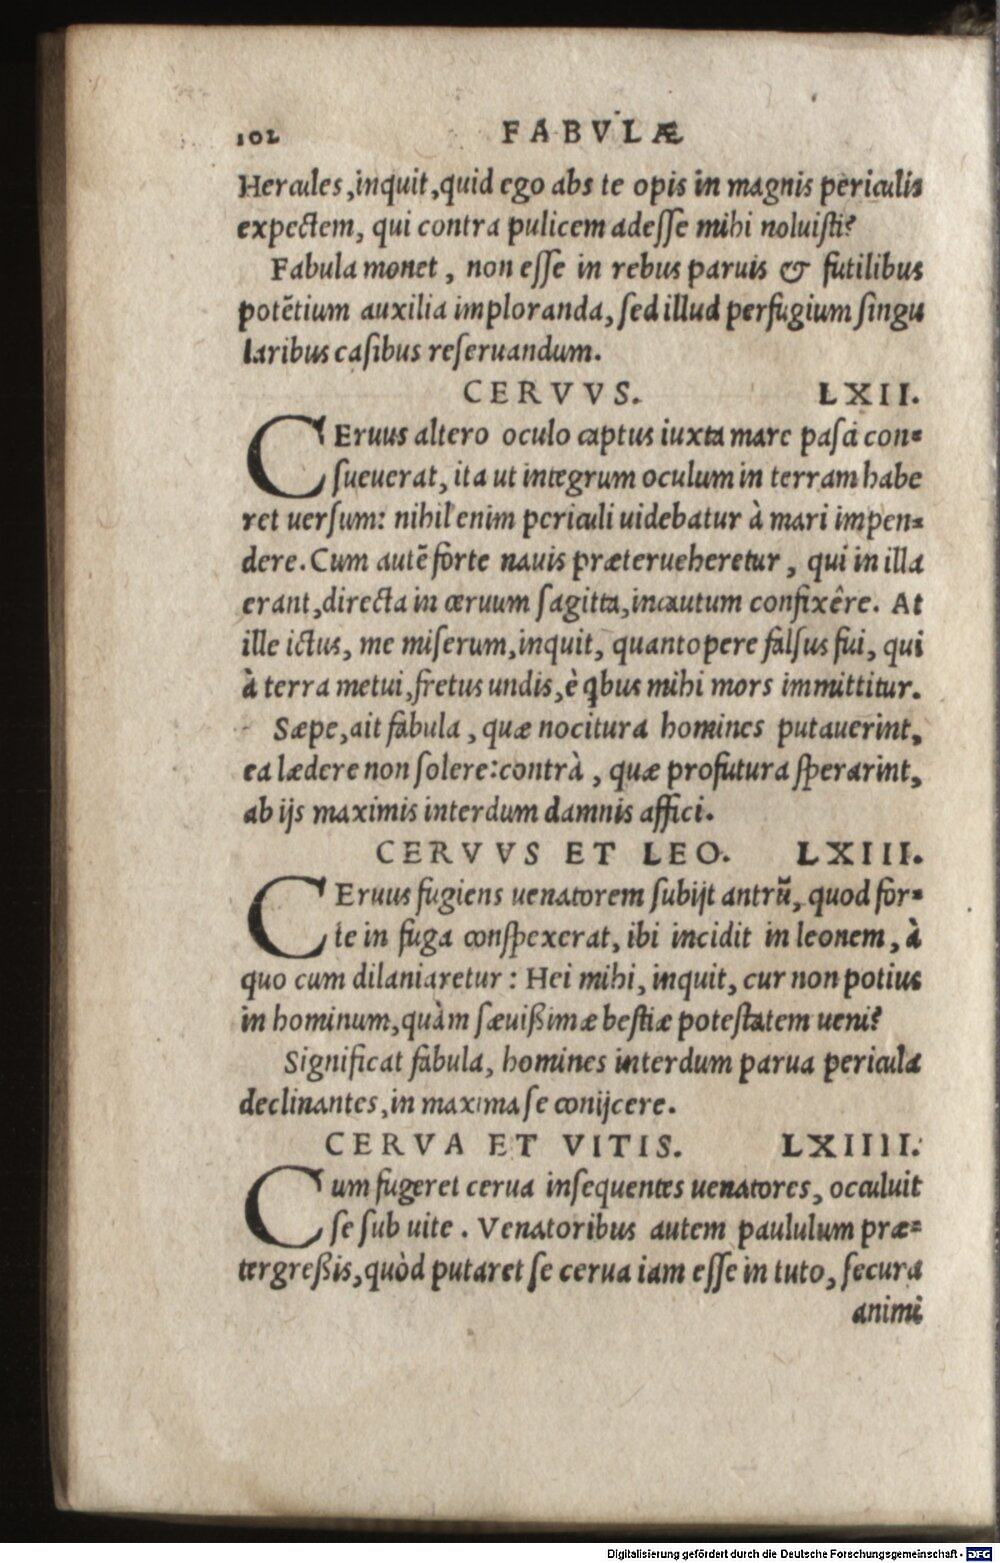 102 FABVLÆ
Hercules, inquit, quid ego abs te opis in magnis periculis
expectem, qui contra pulicem adesse mihi noluisti?
Fabula monet, non esse in rebus paruis & futilibus
potẽtium auxilia imploranda, sed illud perfugium singu
laribus casibus reseruandum.
CERVVS. LXII.
CEruus altero oculo captus iuxta mare pasci con=
sueuerat, ita ut integrum oculum in terram habe
ret uersum: nihil enim periculi uidebatur à mari impen=
dere. Cum autẽ forte nauis præterueheretur, qui in illa
erant, directa in ceruum sagitta, incautum confixêre. At
ille ictus, me miserum, inquit, quantopere falsus fui, qui
à terra metui, fretus undis, è q̱bus mihi mors immittitur.
Sæpe, ait fabula, quæ nocitura homines putauerint,
ea lædere non solere: contrà, quæ profutura sperarint,
ab ijs maximis interdum damnis affici.
CERVVS ET LEO. LXIII.
CEruus fugiens uenatorem subijt antrũ, quod for=
te in fuga conspexerat, ibi incidit in leonem, à
quo cum dilaniaretur: Hei mihi, inquit, cur non potius
in hominum, quàm sæuißimæ bestiæ potestatem ueni?
Significat fabula, homines interdum parua pericula
declinantes, in maxima se conijcere.
CERVA ET VITIS. LXIIII.
Cum fugeret cerua insequentes uenatores, occuluit
se sub uite. Venatoribus autem paululum præ=
tergreßis, quòd putaret se cerua iam esse in tuto, secura
animi
Digitalisierung gefördert durch die Deutsche Forschungsgemeinschaft - DFG